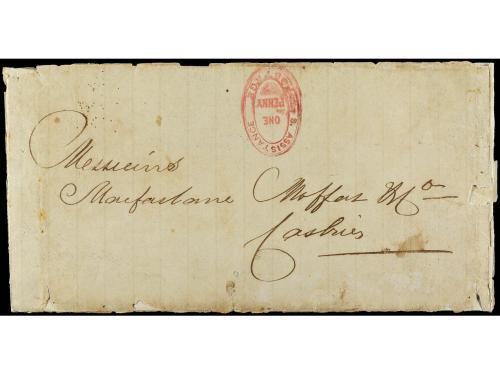 S. ASSISTANCE
ONE
PENNY
Messieurs
Macfarlane Moffat & Co
Castries